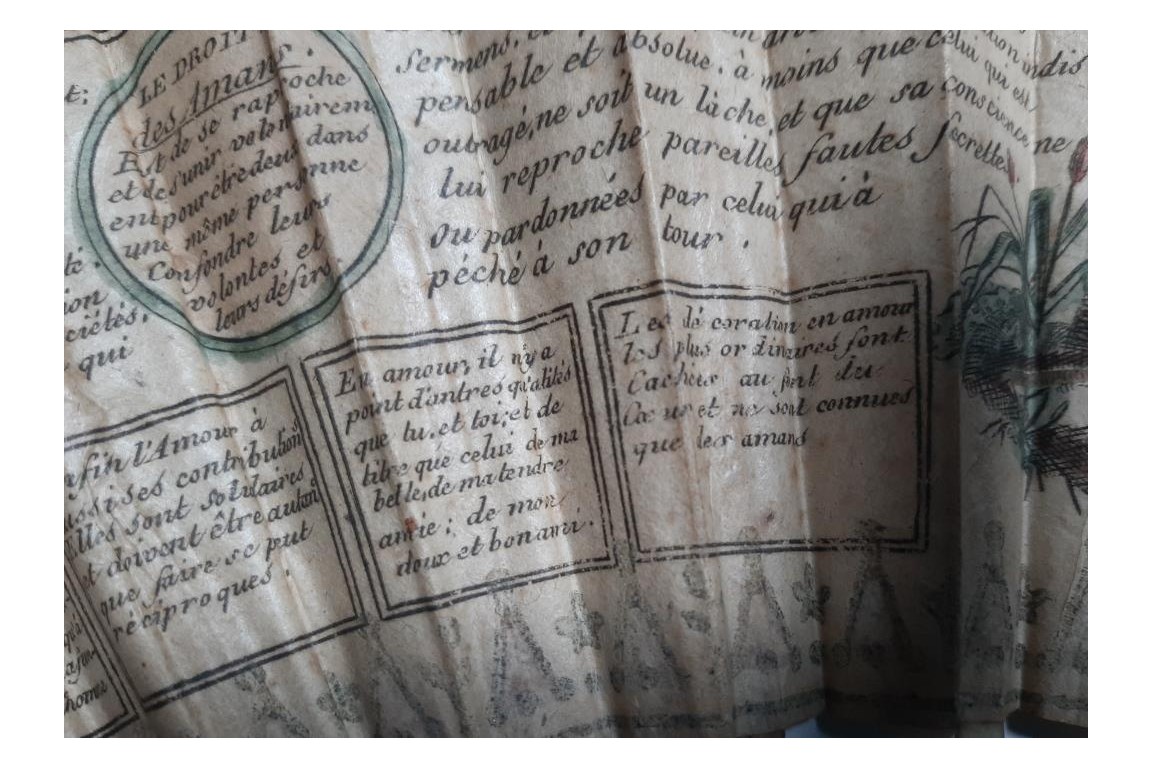 LE DROIT
des Amans.
Est de se raproche
et de s'unir volontairem
ent pour être deux dans
une même personne
Confondre leurs
volontés et
leurs désirs.
t:
té.
ion
ciétés.
qui
sermens,
pensable et absolue. à moins que celui qui est
outragé, ne soit un lâche, et que sa conscience ne
lui reproche pareilles fautes secrettes
ou pardonnées par celui qui à
péché à son tour.
indis
nfin l'Amour à
ussi ses contributions
Elles sont solidaires
et doivent être autant
que faire se put
réciproques.
En amour, il n'y a
point d'autres qualités
que tu, et toi; et de
titre que celui de ma
belle, de ma tendre
amie; de mon
doux et bon ami.
Les dé coration en amour
les plus or dinaires sont
Cachées au font du
Cœur et ne sont connues
que des amans
homes